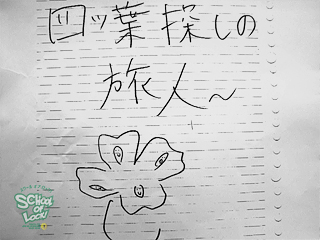 四ッ葉探しの
旅人～
SCHOOL
OF
LOCK!